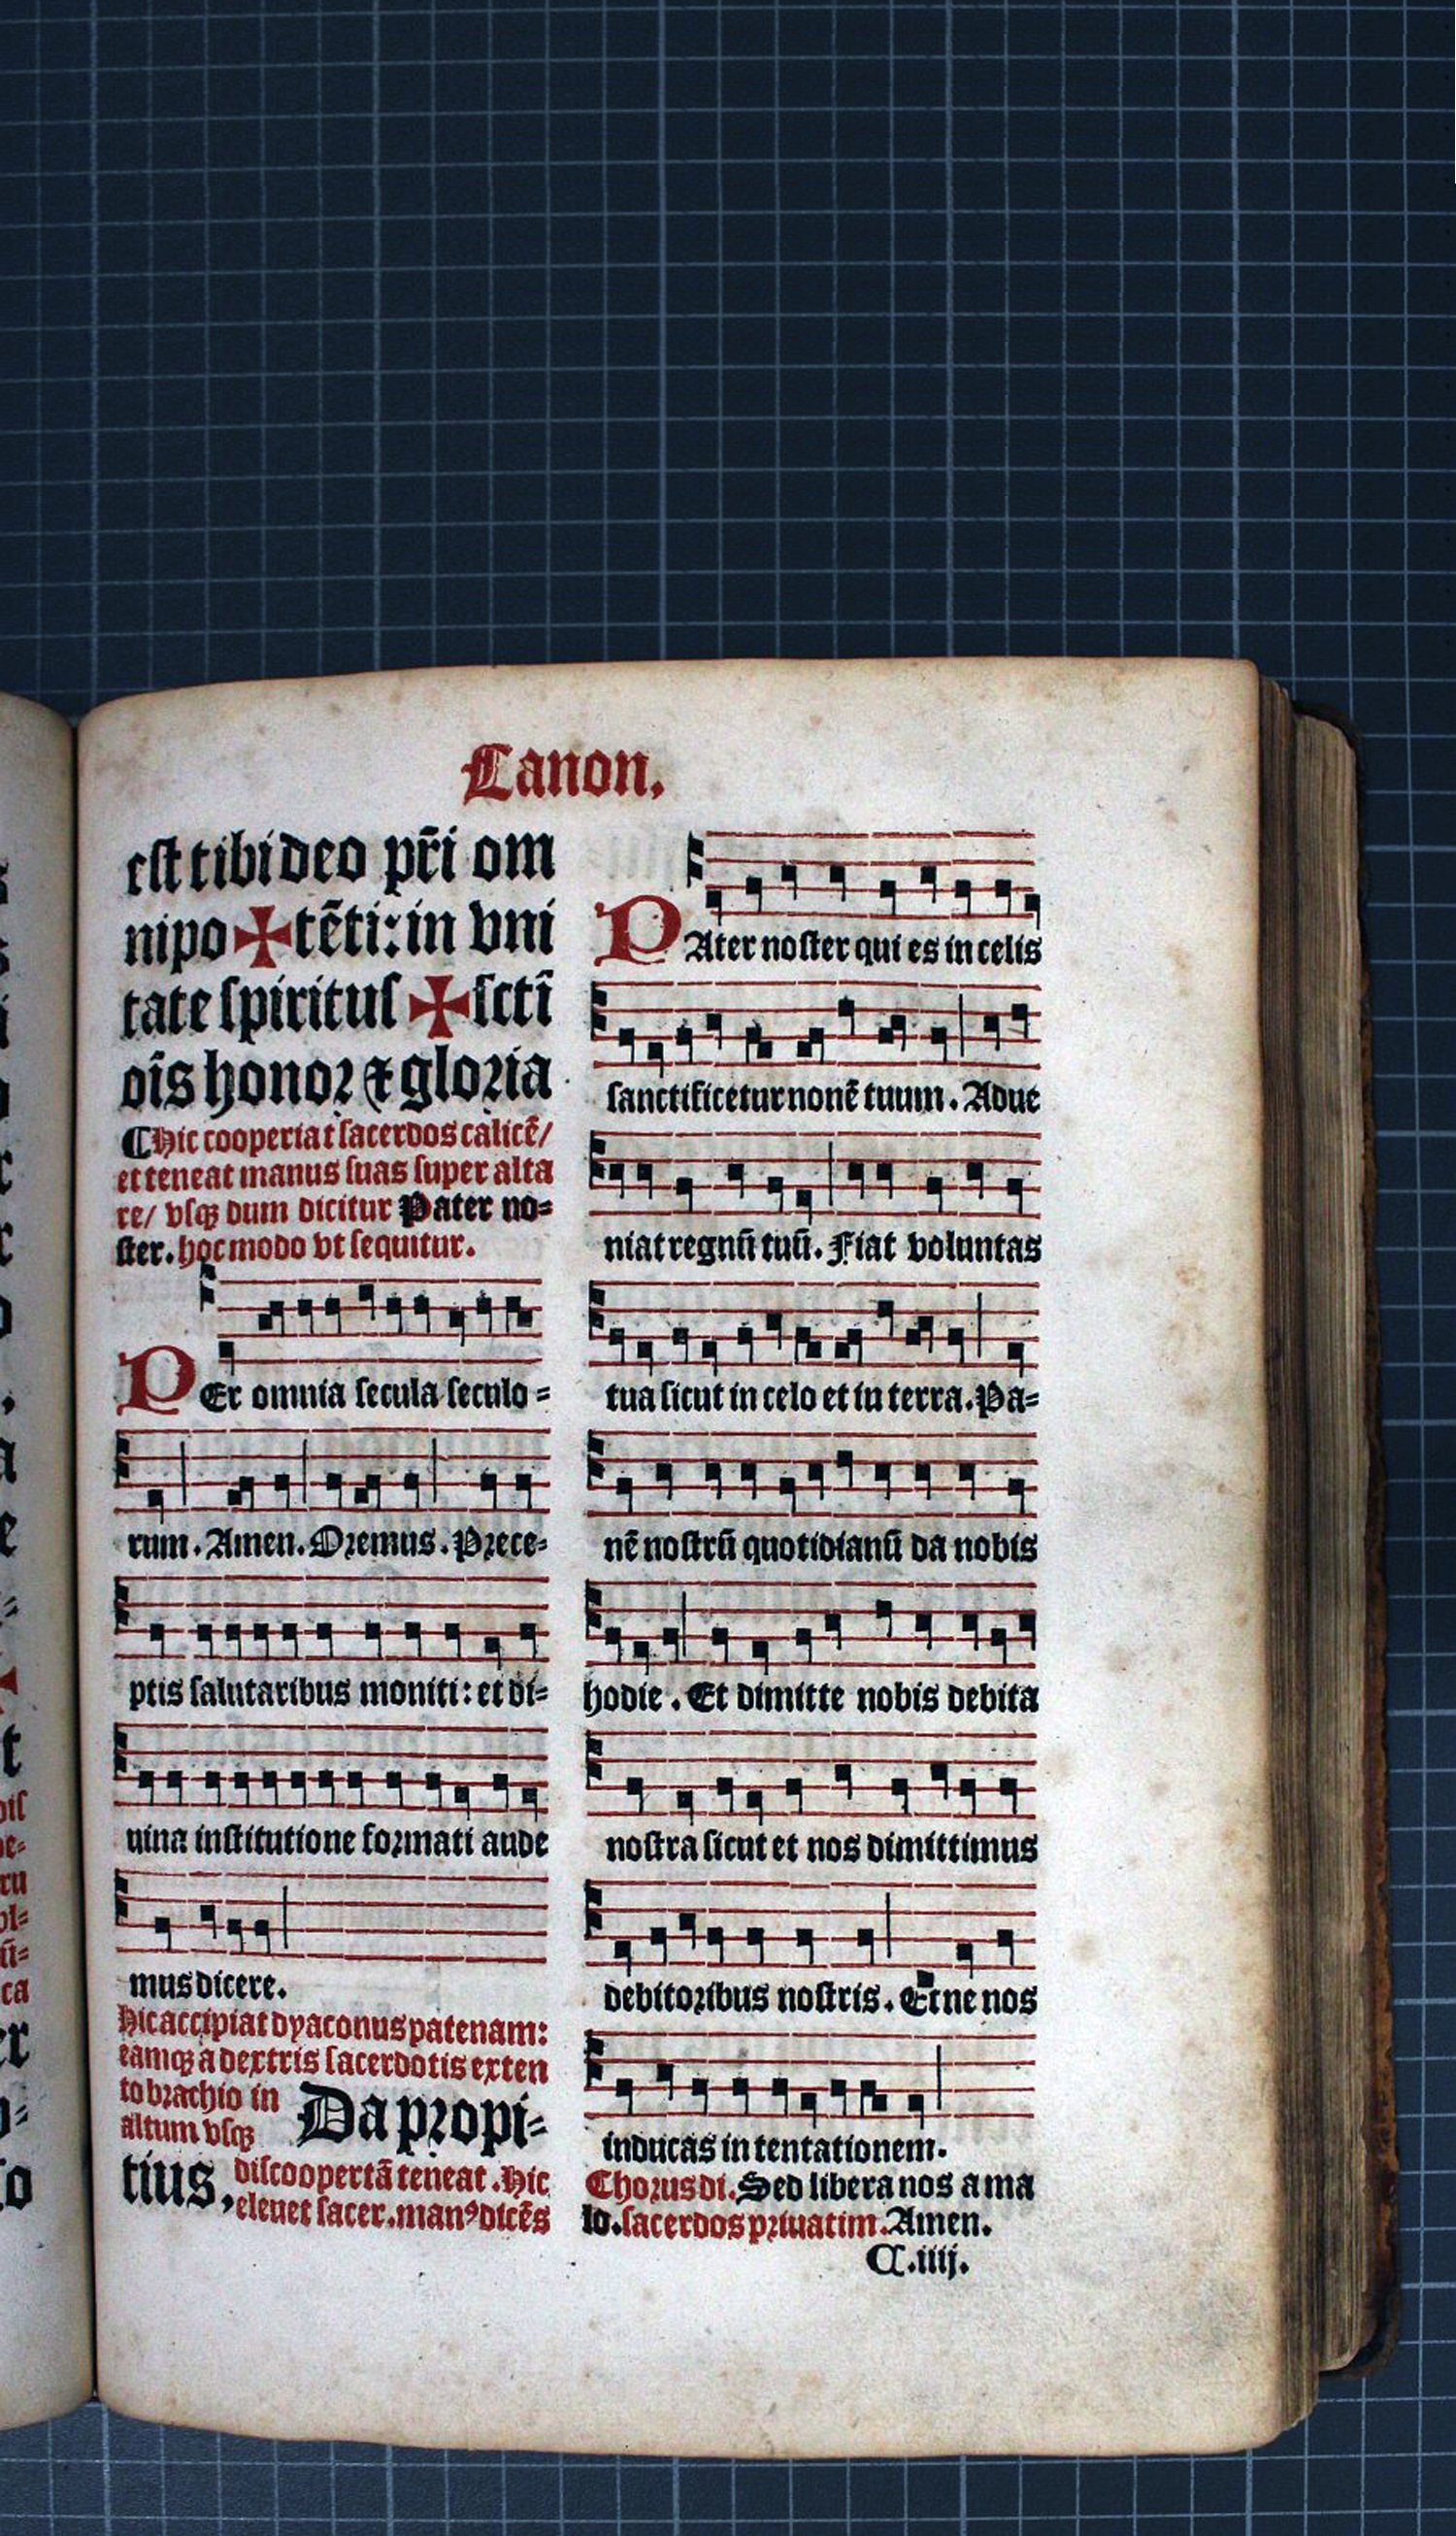 Canon.
est tibi deo pr̄i om
nipo✠tēti: in vni
tate spiritus ✠ sctī
oīs honor & gloria
¶Hic cooperiat sacerdos calicē/
et teneat manus suas super alta
re/ vsqꝫ dum dicitur Pater no=
ster. hoc modo vt sequitur.
PEr omnia secula seculo=
rum. Amen. Oremus. Prece=
ptis salutaribus moniti: et di=
uina institutione formati aude
mus dicere.
Hic accipiat dyaconus patenam:
eamqꝫ a dextris sacerdotis exten
to brachio in
altum vsqꝫ
Da propi=
tius,
discoopertā teneat. Hic
eleuet sacer. manꝰ dicēs
PAter noster qui es in celis
sanctificetur nonē tuum. Adue
niat regnū tuū. Fiat voluntas
tua sicut in celo et in terra. Pa=
nē nostrū quotidianū da nobis
hodie. Et dimitte nobis debita
nostra sicut et nos dimittimus
debitoribus nostris. Et ne nos
inducas in tentationem.
Chorus di. Sed libera nos a ma
lo. sacerdos priuatim. Amen.
C.iiij.